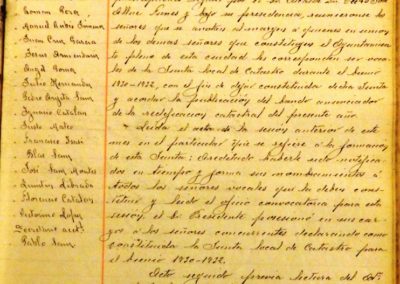 Román Rosa
Manuel Rubio
Juan Cruz García
Benus Armendariz
Angel Roma
Julio Hernandez
Pedro Angulo San
Ignacio Catalan
Justo Mateo
Francisco José
Blas Sanz
José San Martin
Quintin Labrada
Florencio Catalan
Victorino López
Secretario acctl.
Pablo Sanz
Jiménez y bajo su presidencia, reunieronse los
señores que se anotan al margen a quienes en union
de los demas señores que constituyen el Ayuntamien
to pleno de esta ciudad les corresponden ser voca
les de la Junta local de Catastro durante el bienio
1930-1932, con el fin de dejar constituida dicha Junta
y acordar la publicacion del bando anunciador
de la rectificacion catastral del presente año.
Leida el acta de la sesion anterior de este
mes en el particular que se refiere a la formacion
de esta Junta; Acreditado haberle sido notificados
en tiempo y forma sus nombramientos á
todos los señores vocales que la deben cons-
tituir y leido el oficio convocatoria para esta
sesion, el Sr. Presidente posesionó en sus car-
gos á los señores concurrentes declarando como
constituida la Junta local de Catastro para
el bienio 1930-1932.
Acto seguido previa lectura del